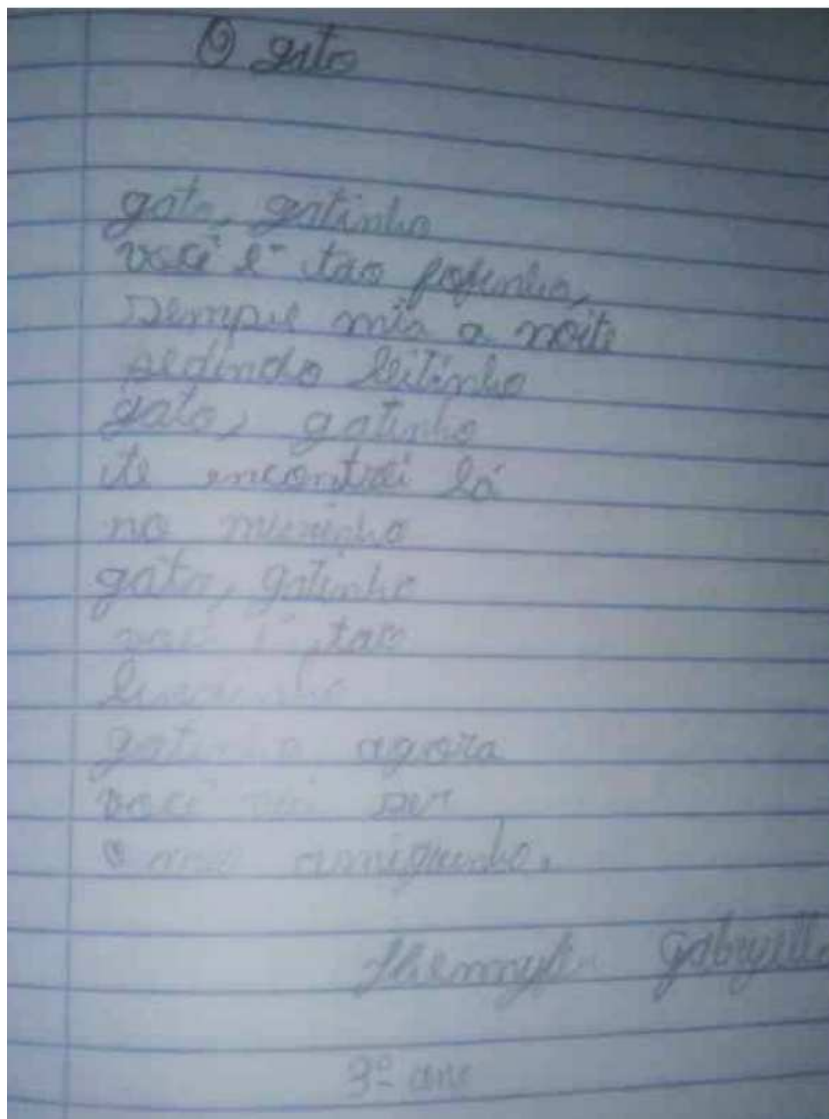 O gato
gato, gatinho
você é tão fofinho,
sempre mia a noite
pedindo leitinho
gato, gatinho
te encontrei lá
no murinho
gato, gatinho
você é tão
lindinho
gatinho agora
você vai ser
o meu amiguinho.
Gabryella
3º ano